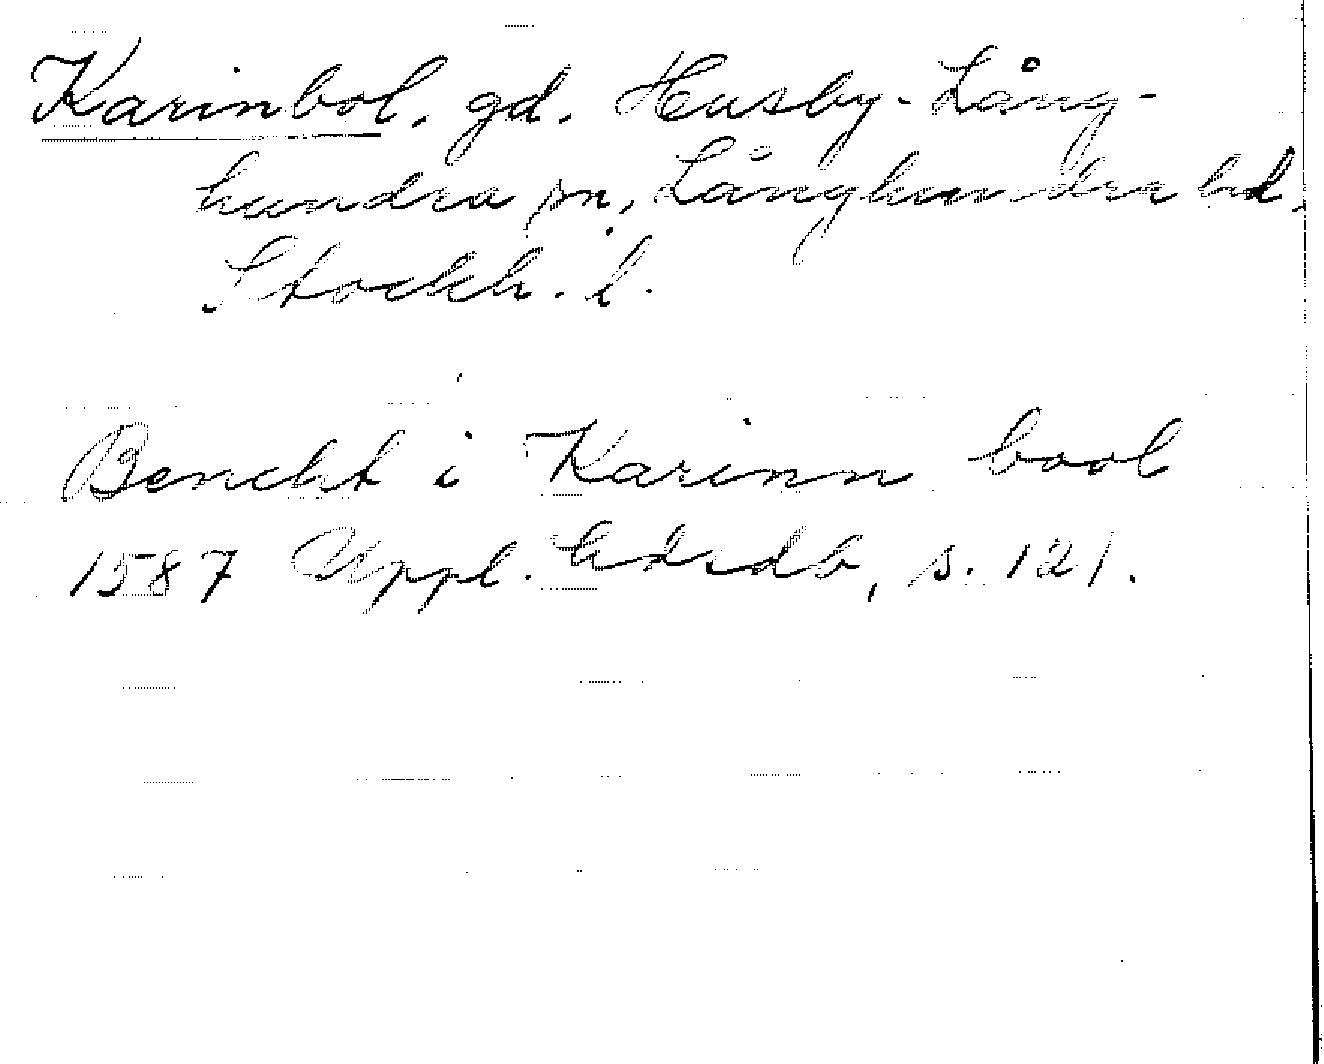 Karinbol. gd. Husby-Lång-
hundra sn, Långhundra hd,
Stockh. l.
Bencht i Karinn bool
1587 Uppl. hdrdb, s. 121.